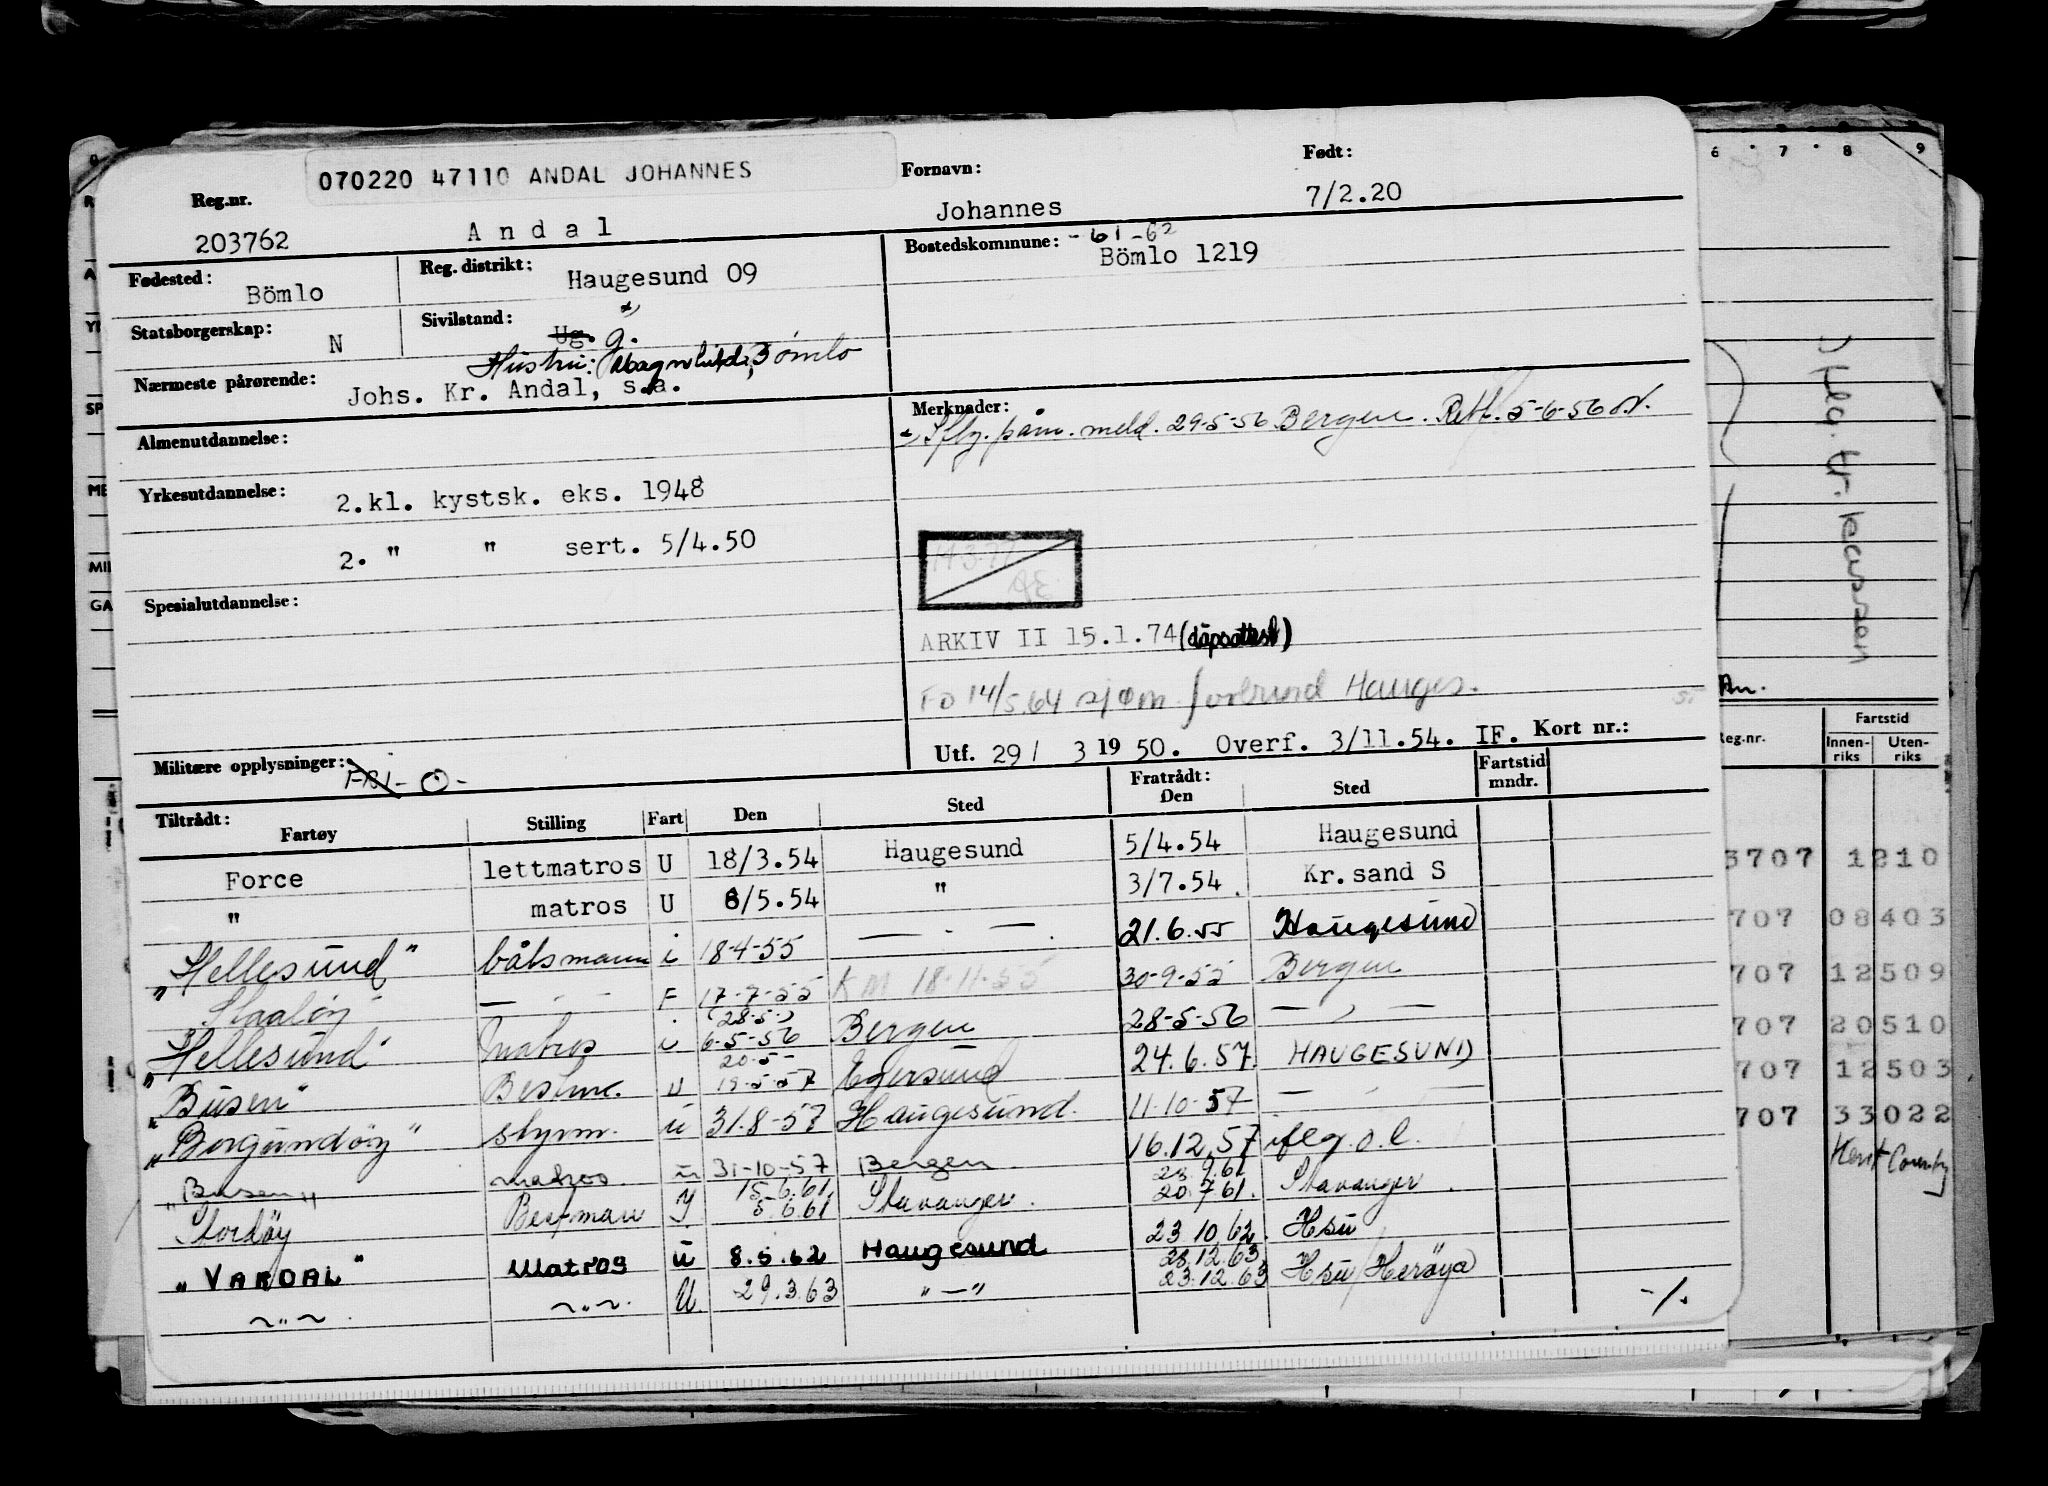 070220 47110 ANDAL JOHANNES
Reg.nr. Fornavn: Født:
203762 Andal Johannes 7/2.20
Fødested: Bömlo Reg. distrikt: Haugesund 09 Bostedskommune: -61-62
Bömlo 1219
Statsborgerskap: N Sivilstand: Ug. g.
Hustru: Magnhild, Bømlo
Nærmeste pårørende: Johs. Kr. Andal, s.a.
Almenutdannelse:
Merknader:
Iflg. påm. meld. 29-5-56 Bergen. Rett. 5-6-56
Yrkesutdannelse: 2.kl. kystsk. eks. 1948
2. " " sert. 5/4.50
Spesialutdannelse:
ARKIV II 15.1.74 (dåpsattest)
FO 14/5.64 sjøm. forbund Hauges.
Utf. 29/ 3 1950. Overf. 3/11.54. IF. Kort nr.:
Militære opplysninger: FRI - O -
Tiltrådt: Fratrådt: Fartstid
Fartøy Stilling Fart Den Sted Den Sted mndr.
Force lettmatros U 18/3.54 Haugesund 5/4.54 Haugesund
" matros U 8/5.54 " 3/7.54. Kr.sand S
"Hellesund" båtsmann i 18-4-55 — · — . 21.6.55 Haugesund
— · — F 17-7-55 KM 18-11-55 30-9-55 Bergen
(28.5.)
"Hellesund" matros i 6-5-56 Bergen 28-5-56 — , —
20.5
"Busen" Bestm. U 19.5.57 Egersund 24.6.57. HAUGESUND
"Borgundöy" styrm. u 31.8-57 Haugesund. 11-10-57 — · —
"Busen" matros u 31-10-57 Bergen 16.12.57 iflg. o.l.
15.6.61 23.9.61
Stordöy Bestmann I 5.6.61 Stavanger. 20.7.61. Stavanger.
"VARDAL" Matros u 8.5.62 Haugesund 23 10.62. Hsu
28.12.63
~"~ . ~"~. U. 29.3.63 "—" 23.12.63 Hsu/Herøya
-/.
6 7 8 9
An.
Reg.nr. Fartstid
Innen-riks Uten-riks
3707 1210
707 08403
707 12509
707 20510
707 12503
707 33022
Kent County